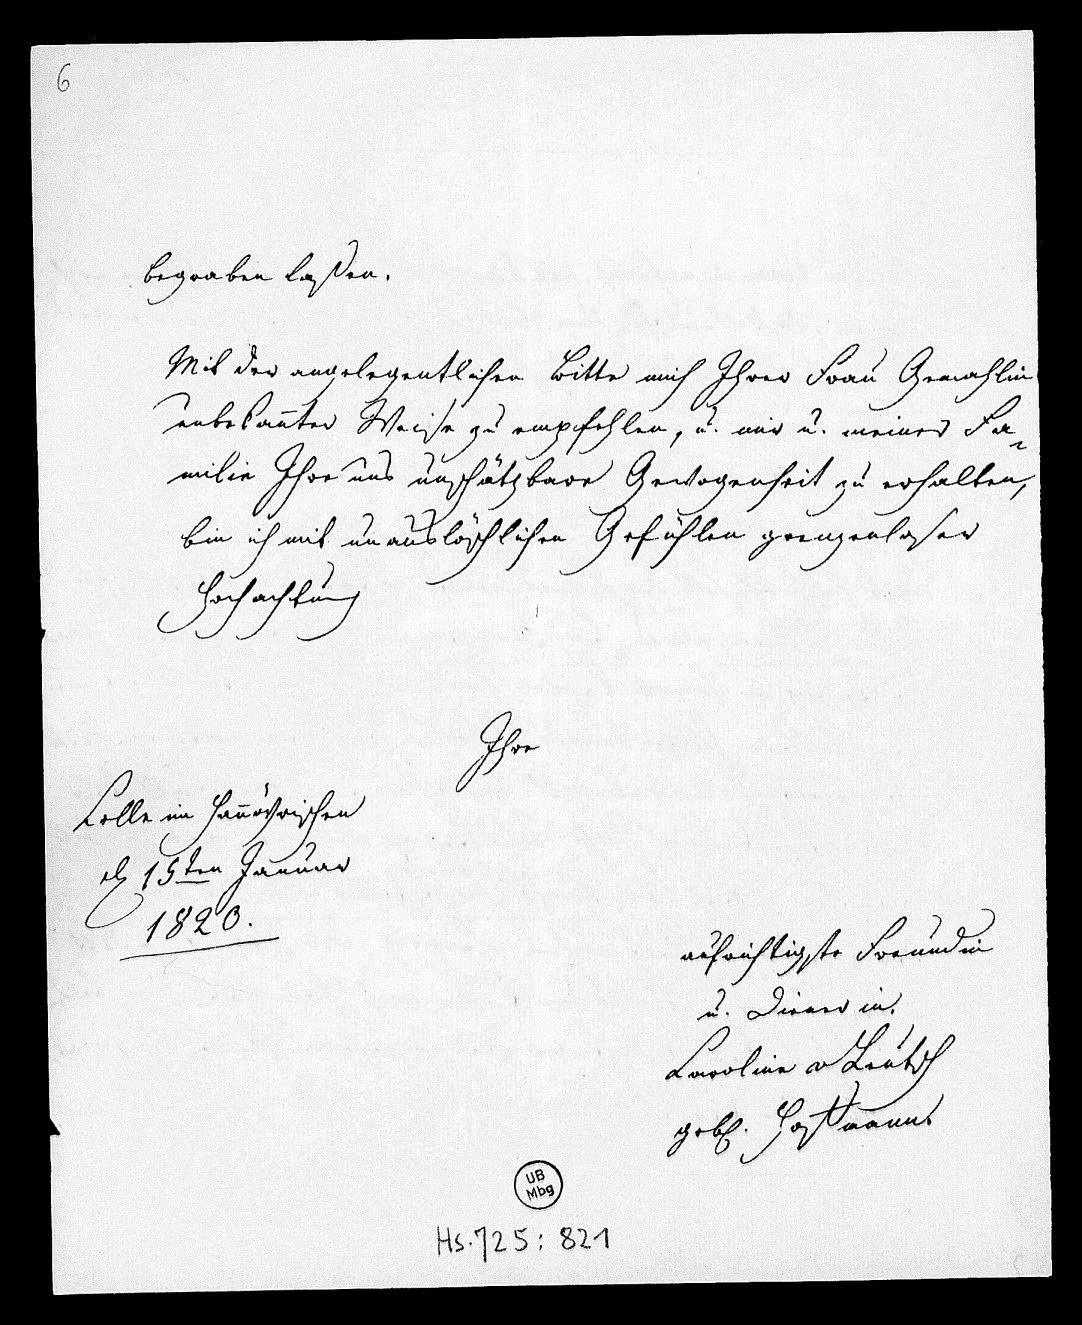 6
begraben laßen.
Mit der angelegentlichen Bitte mich Ihrer Frau Gemahlin
unbekañter Weise zu empfehlen, u. mir u. meiner Fa-
milie Ihre uns unschätzbare Gewogenheit zu erhalten,
bin ich mit unauslöschlichen Gefühlen grenzenloser
Hochachtung
Ihre
Celle im Hañövrischen
d 15ten Januar
1820.
aufrichtigste Freundin
u. Dienerin.
Caroline v Leutsch
geb. Hostmann.
UB
Mbg
Hs. 725: 821